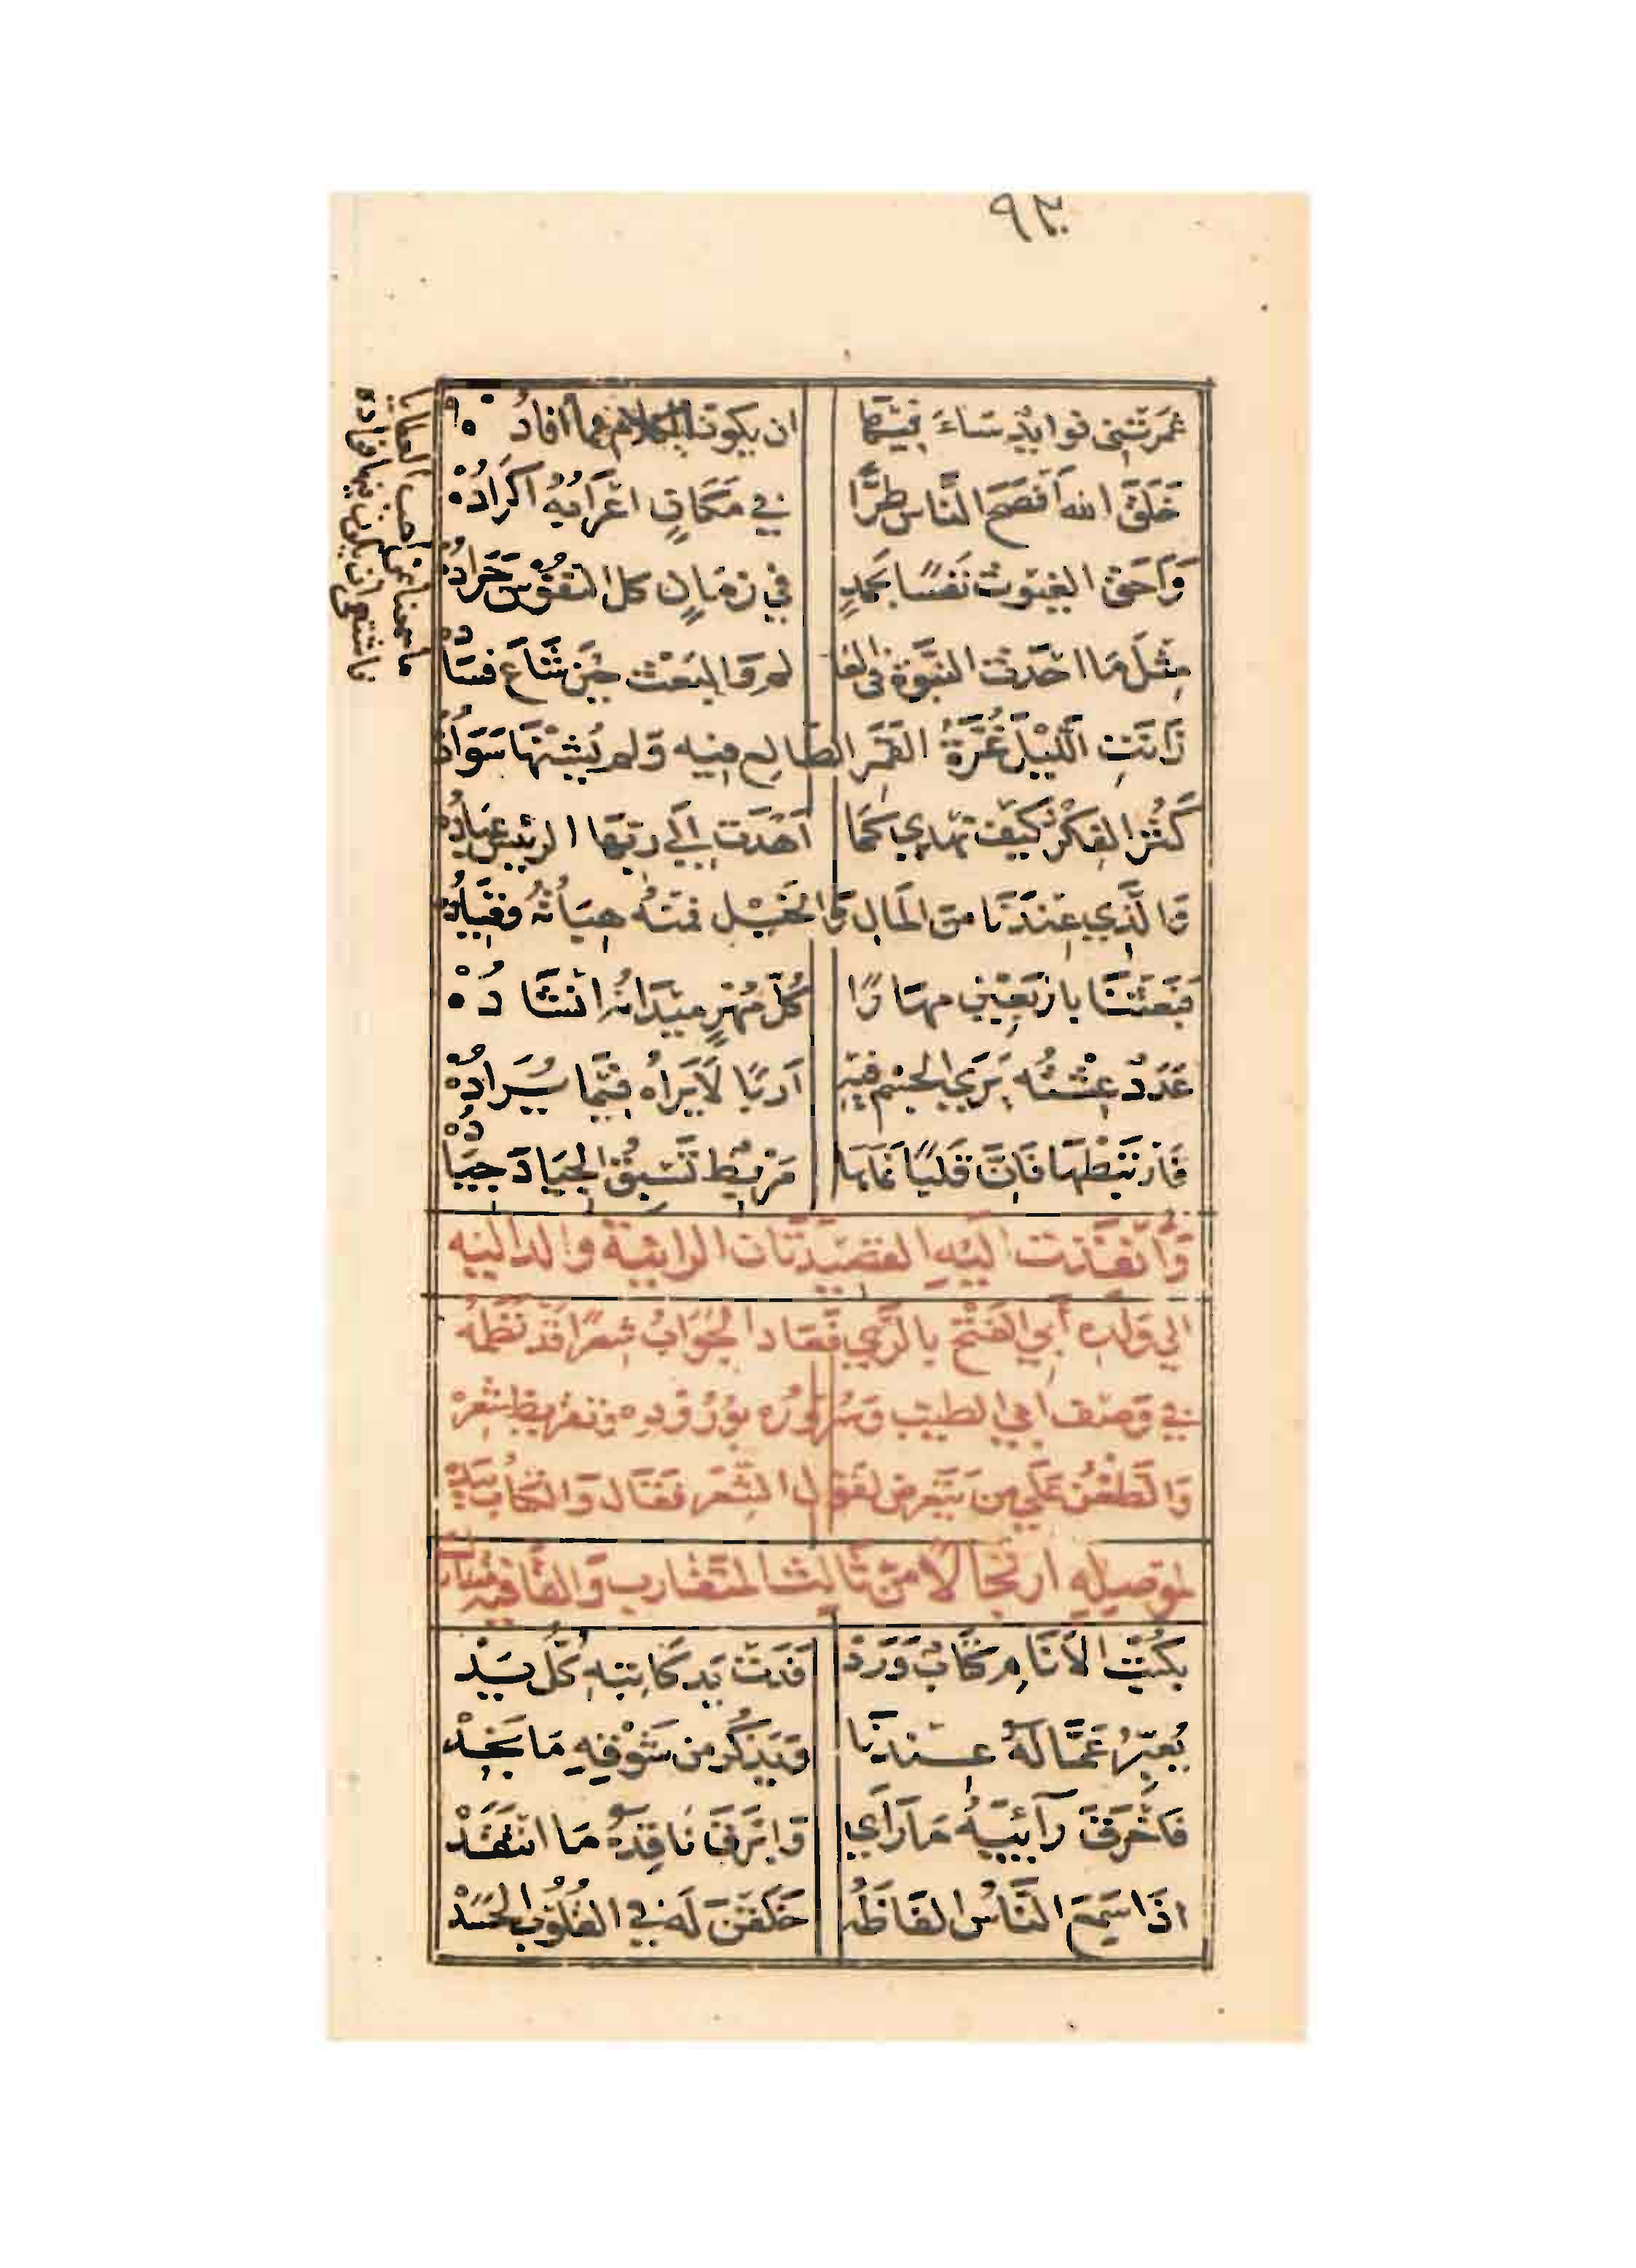 ٩٣
غمرتني فوايد شاء فيها ان يكون الكلام مما افاده
خَلَقَ الله اَفصَحَ النَّاس طرًّا في مَكَانٍ اعْرَابُهُ اكرَادُهْ
وَاَحَقَّ الغيوث نَفسًا بحَمدٍ في زمَانٍ كل النفوس جَرادُهْ
مِثلَ مَا احْدَث النبوة في العا لم وَالبَعْثَ حِيْنَ شَاعَ فسَادُه
زَانَتِ اللَّيْلَ غُرَّةُ القَمَر الطالِع فيه وَلم يُشِنْهَا سَوَادُهْ
كَثُرَ الفِكْرُ كَيفَ نهدي كَمَا اَهْدَت اِلَى ربّهَا الرئيسِ عِبَادُهْ
وَالَّذي عِنْدَنَا من المَال وَالخَيْل فمنْهُ هِبَاتُهُ وقِيَادُهْ
فبَعَثْنَا بارْبَعِيْنَ مهَارًا كُلّ مُهْرٍ مَيْدَانُهُ انْشَادُهْ
عَدَدٌ عِشْتُه يَرَى الجسْم فيهِ اَرَبًا لَا يَرَاهُ فِيمَا يُزَادُهْ
فَارْتَبطْهَا فَاِنَّ قَلبًا نَمَاهَا مَرْبِطٌ تَسْبِقُ الجِيَادَ جِيَادُهْ
وَاَنْفَذت اليْهِ القصِيْدَتَان الرائية والدالية
الى وَلده أبي الفَتْحِ بالرَّي فَعَادَ الجَوَابُ شِعْرًا قَدْ نَظَمَهُ
في وَصْف ابي الطيب وَسُرُوْرُه بوُرُوْدِه وتقريظ شعرهْ
وَالطَّعْن عَلى من يَتَعَرض لقول الشّعر فقَال وَالكتَاب بيَدِهْ
ارتجالًا من ثَالِث المتقَارب وَالقَافية
بكُتْبِ الاَنَامِ كتَابٌ وَرَدْ فَدَتْ يَد كَاتِبهِ كُلُّ يَدْ
يُعبِّرُ عَمَّا لَهُ عِندنَا وَيَذكُر من شَوْقِهِ مَا يَجِدْ
فَاَخْرَقَ رَآئِيَهُ مَا رَأى وَابْرَقَ نَاقِدَهُ مَا انْتَقَدْ
اذَا سَمِعَ النَّاسُ الفَاظَهُ خَلَقْنَ لَه في القُلُوْبِ الحَسَدْ